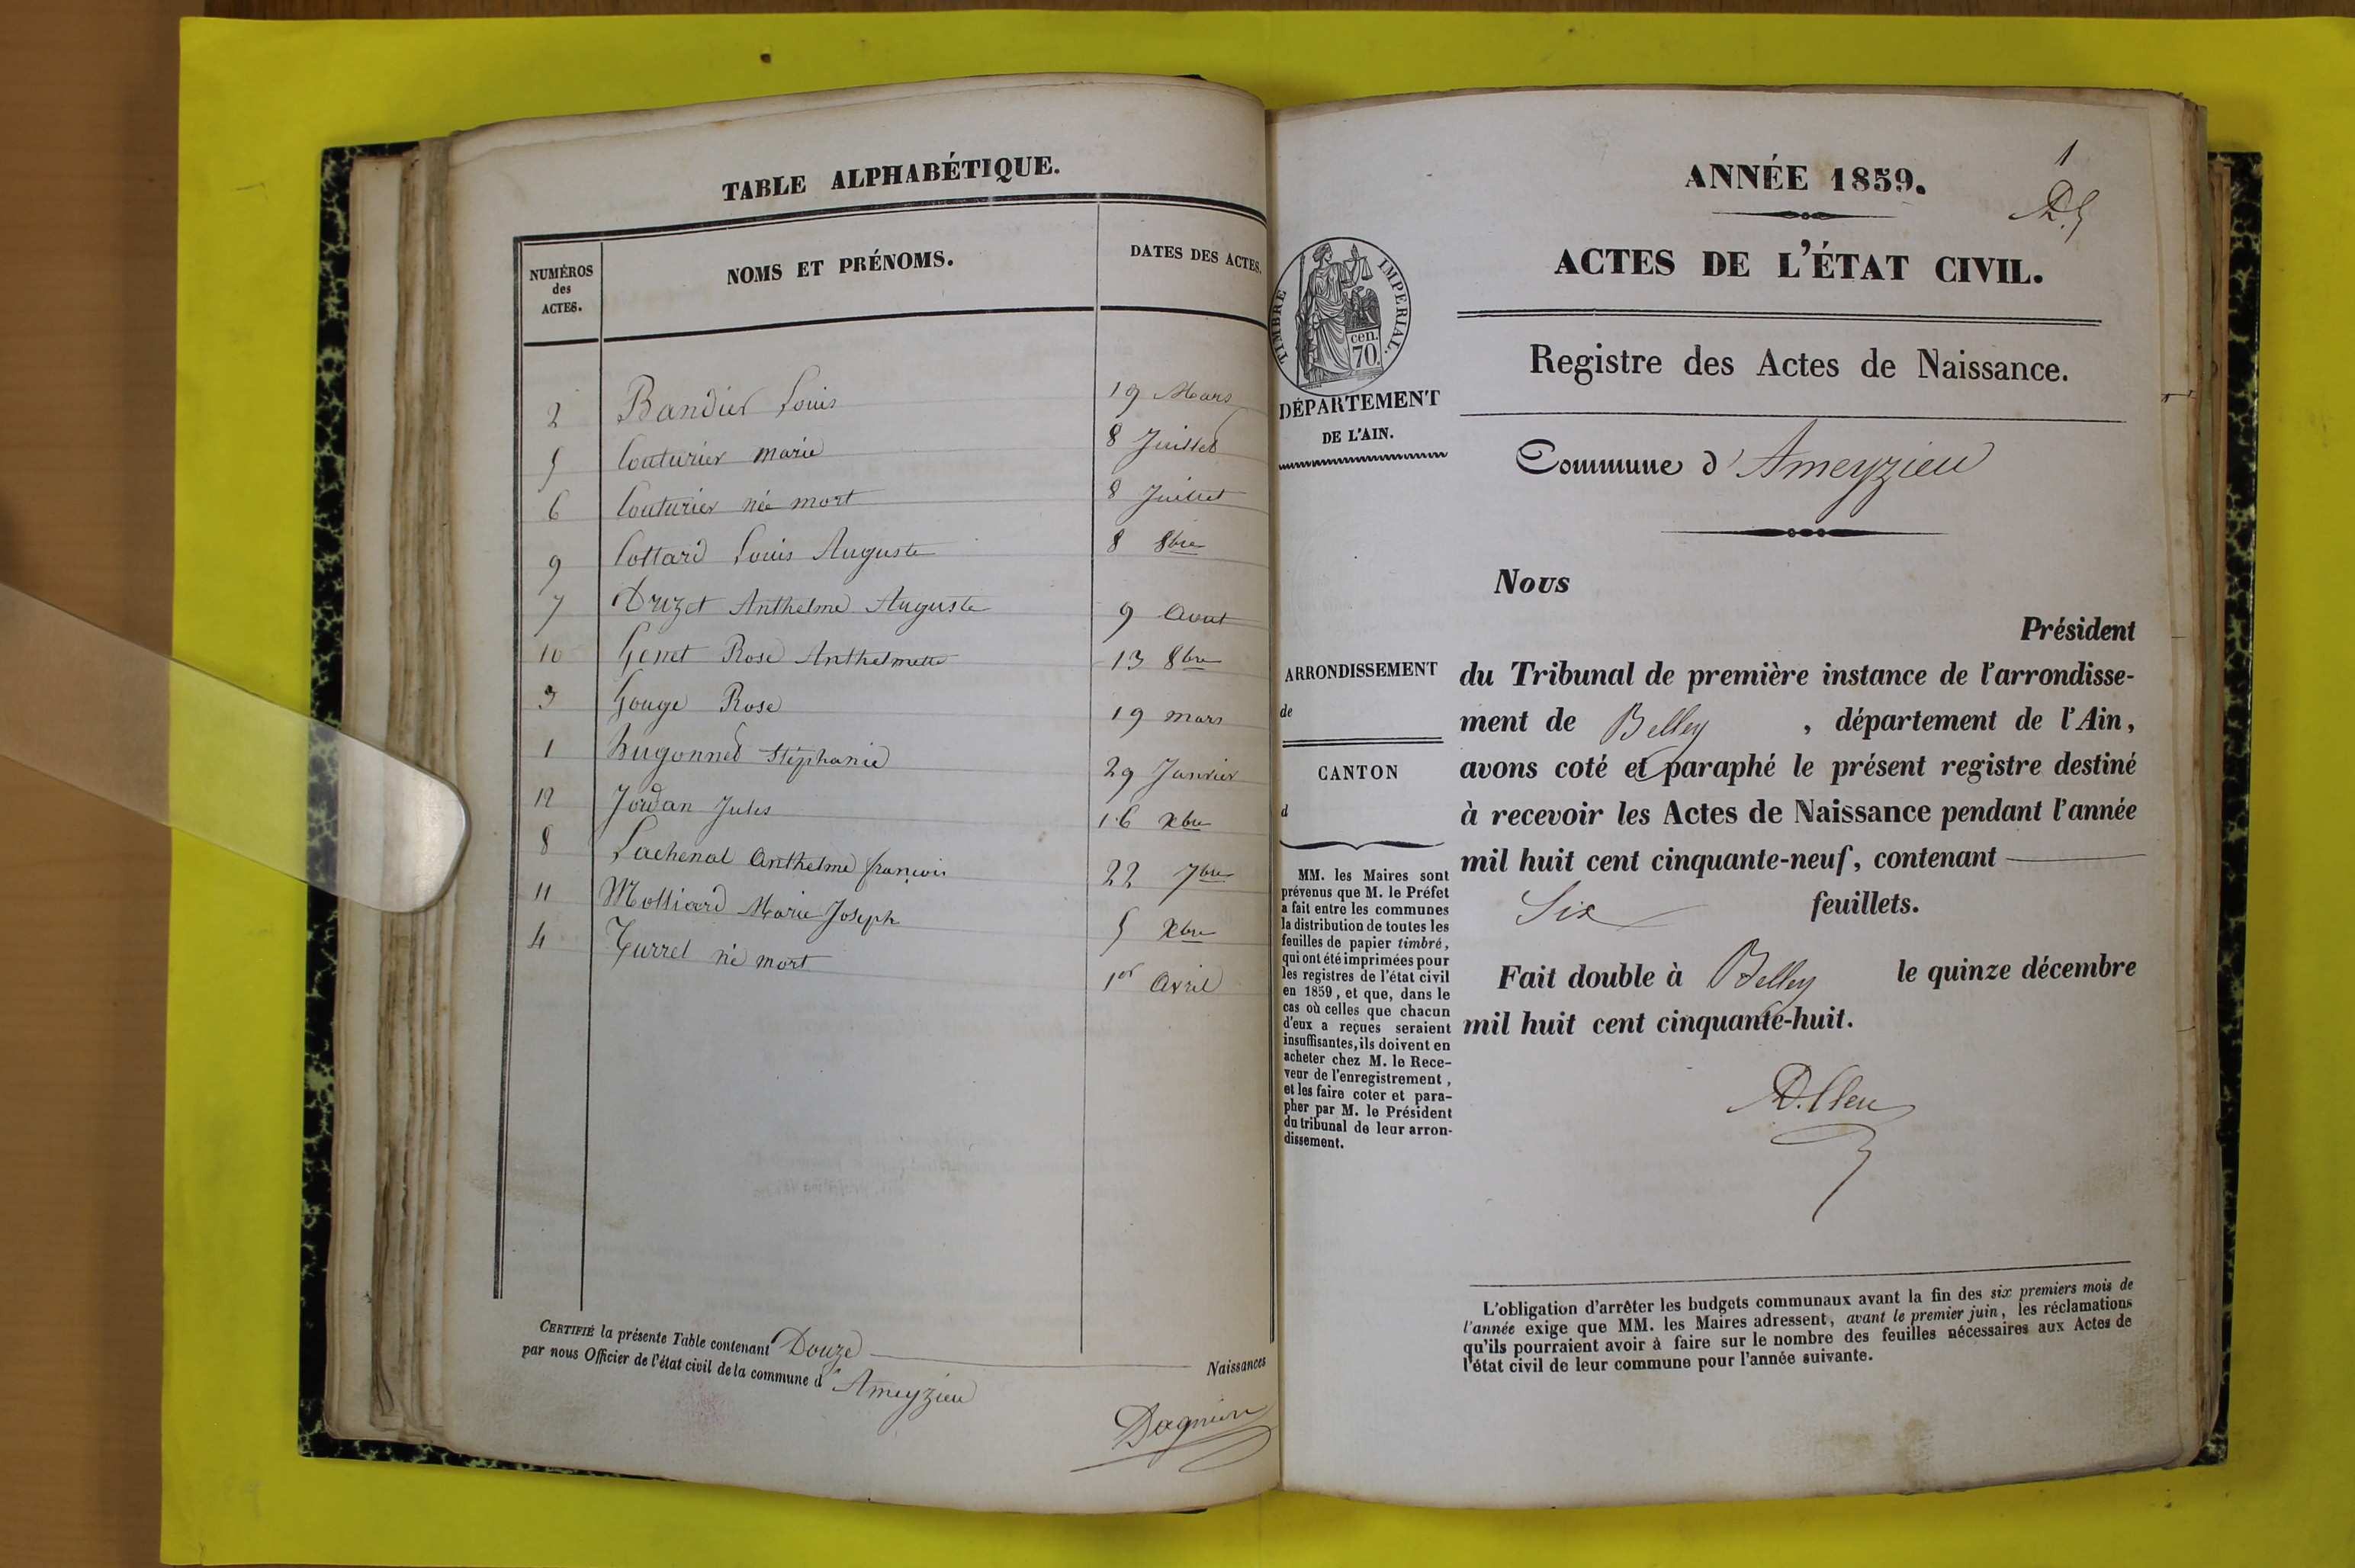 TABLE ALPHABÉTIQUE.
NUMÉROS des ACTES. NOMS ET PRÉNOMS. DATES DES ACTES.
2 Bandier Louis 19 Mars
5 Couturier marie 8 Juillet
6 Couturier né mort 8 Juillet
9 Cottard Louis Auguste 8 8bre
7 Druzet Anthelme Auguste 9 Aout
10 Genet Rose Anthelmette 13 8bre
3 Gouge Rose 19 mars
1 hugonnet Stéphanie 29 Janvier
12 Jordan Jules 16 Xbre
8 Lachenal Anthelme françois 22 7bre
11 Molliard Marie Joseph 5 Xbre
4 Turrel né mort 1er Avril
CERTIFIÉ la présente Table contenant Douze Naissances
par nous Officier de l'état civil de la commune d'Ameyzieu
1
ANNÉE 1859.
ACTES DE L'ÉTAT CIVIL.
Registre des Actes de Naissance.
Commune d'Ameyzieu
TIMBRE IMPERIAL.
cen.
70.
DÉPARTEMENT
DE L'AIN.
ARRONDISSEMENT
de
CANTON
d
MM. les Maires sont
prévenus que M. le Préfet
a fait entre les communes
la distribution de toutes les
feuilles de papier timbré,
qui ont été imprimées pour
les registres de l'état civil
en 1859, et que, dans le
cas où celles que chacun
d'eux a reçues seraient
insuffisantes, ils doivent en
acheter chez M. le Rece-
veur de l'enregistrement,
et les faire coter et para-
pher par M. le Président
du tribunal de leur arron-
dissement.
Nous
Président
du Tribunal de première instance de l'arrondisse-
ment de Belley , département de l'Ain,
avons coté et paraphé le présent registre destiné
à recevoir les Actes de Naissance pendant l'année
mil huit cent cinquante-neuf, contenant
Six feuillets.
Fait double à Belley le quinze décembre
mil huit cent cinquante-huit.
L'obligation d'arrêter les budgets communaux avant la fin des six premiers mois de
l'année exige que MM. les Maires adressent, avant le premier juin, les réclamations
qu'ils pourraient avoir à faire sur le nombre des feuilles nécessaires aux Actes de
l'état civil de leur commune pour l'année suivante.